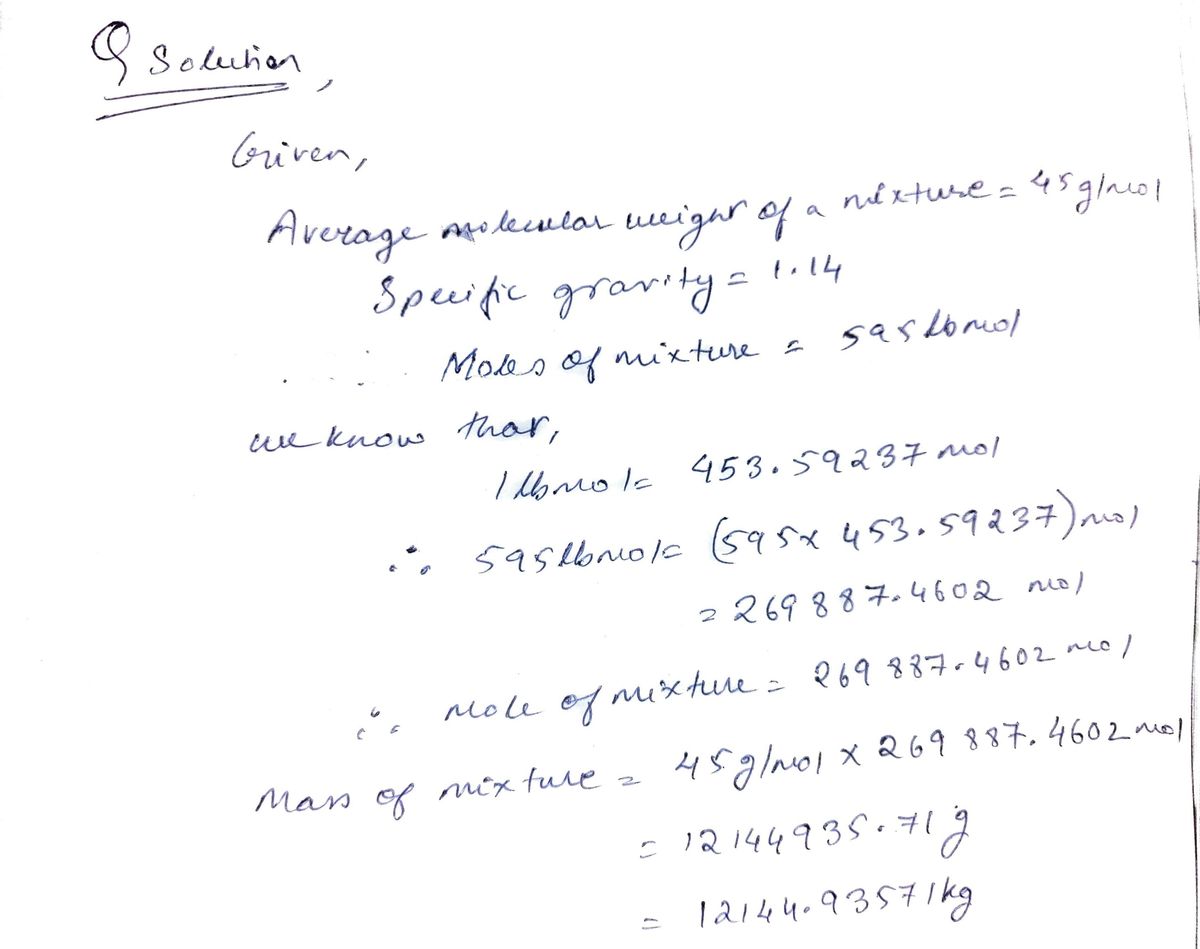 Q Solution,
Given,
Average molecular weight of a mixture = 45 g/mol
Specific gravity = 1.14
Moles of mixture = 595 lbmol
we know that,
1 lbmol = 453.59237 mol
∴ 595 lbmol = (595 x 453.59237) mol
= 269 887.4602 mol
∴ Mole of mixture = 269 887.4602 mol
Mass of mixture = 45 g/mol x 269 887.4602 mol
= 12144935.71 g
= 12144.93571 kg